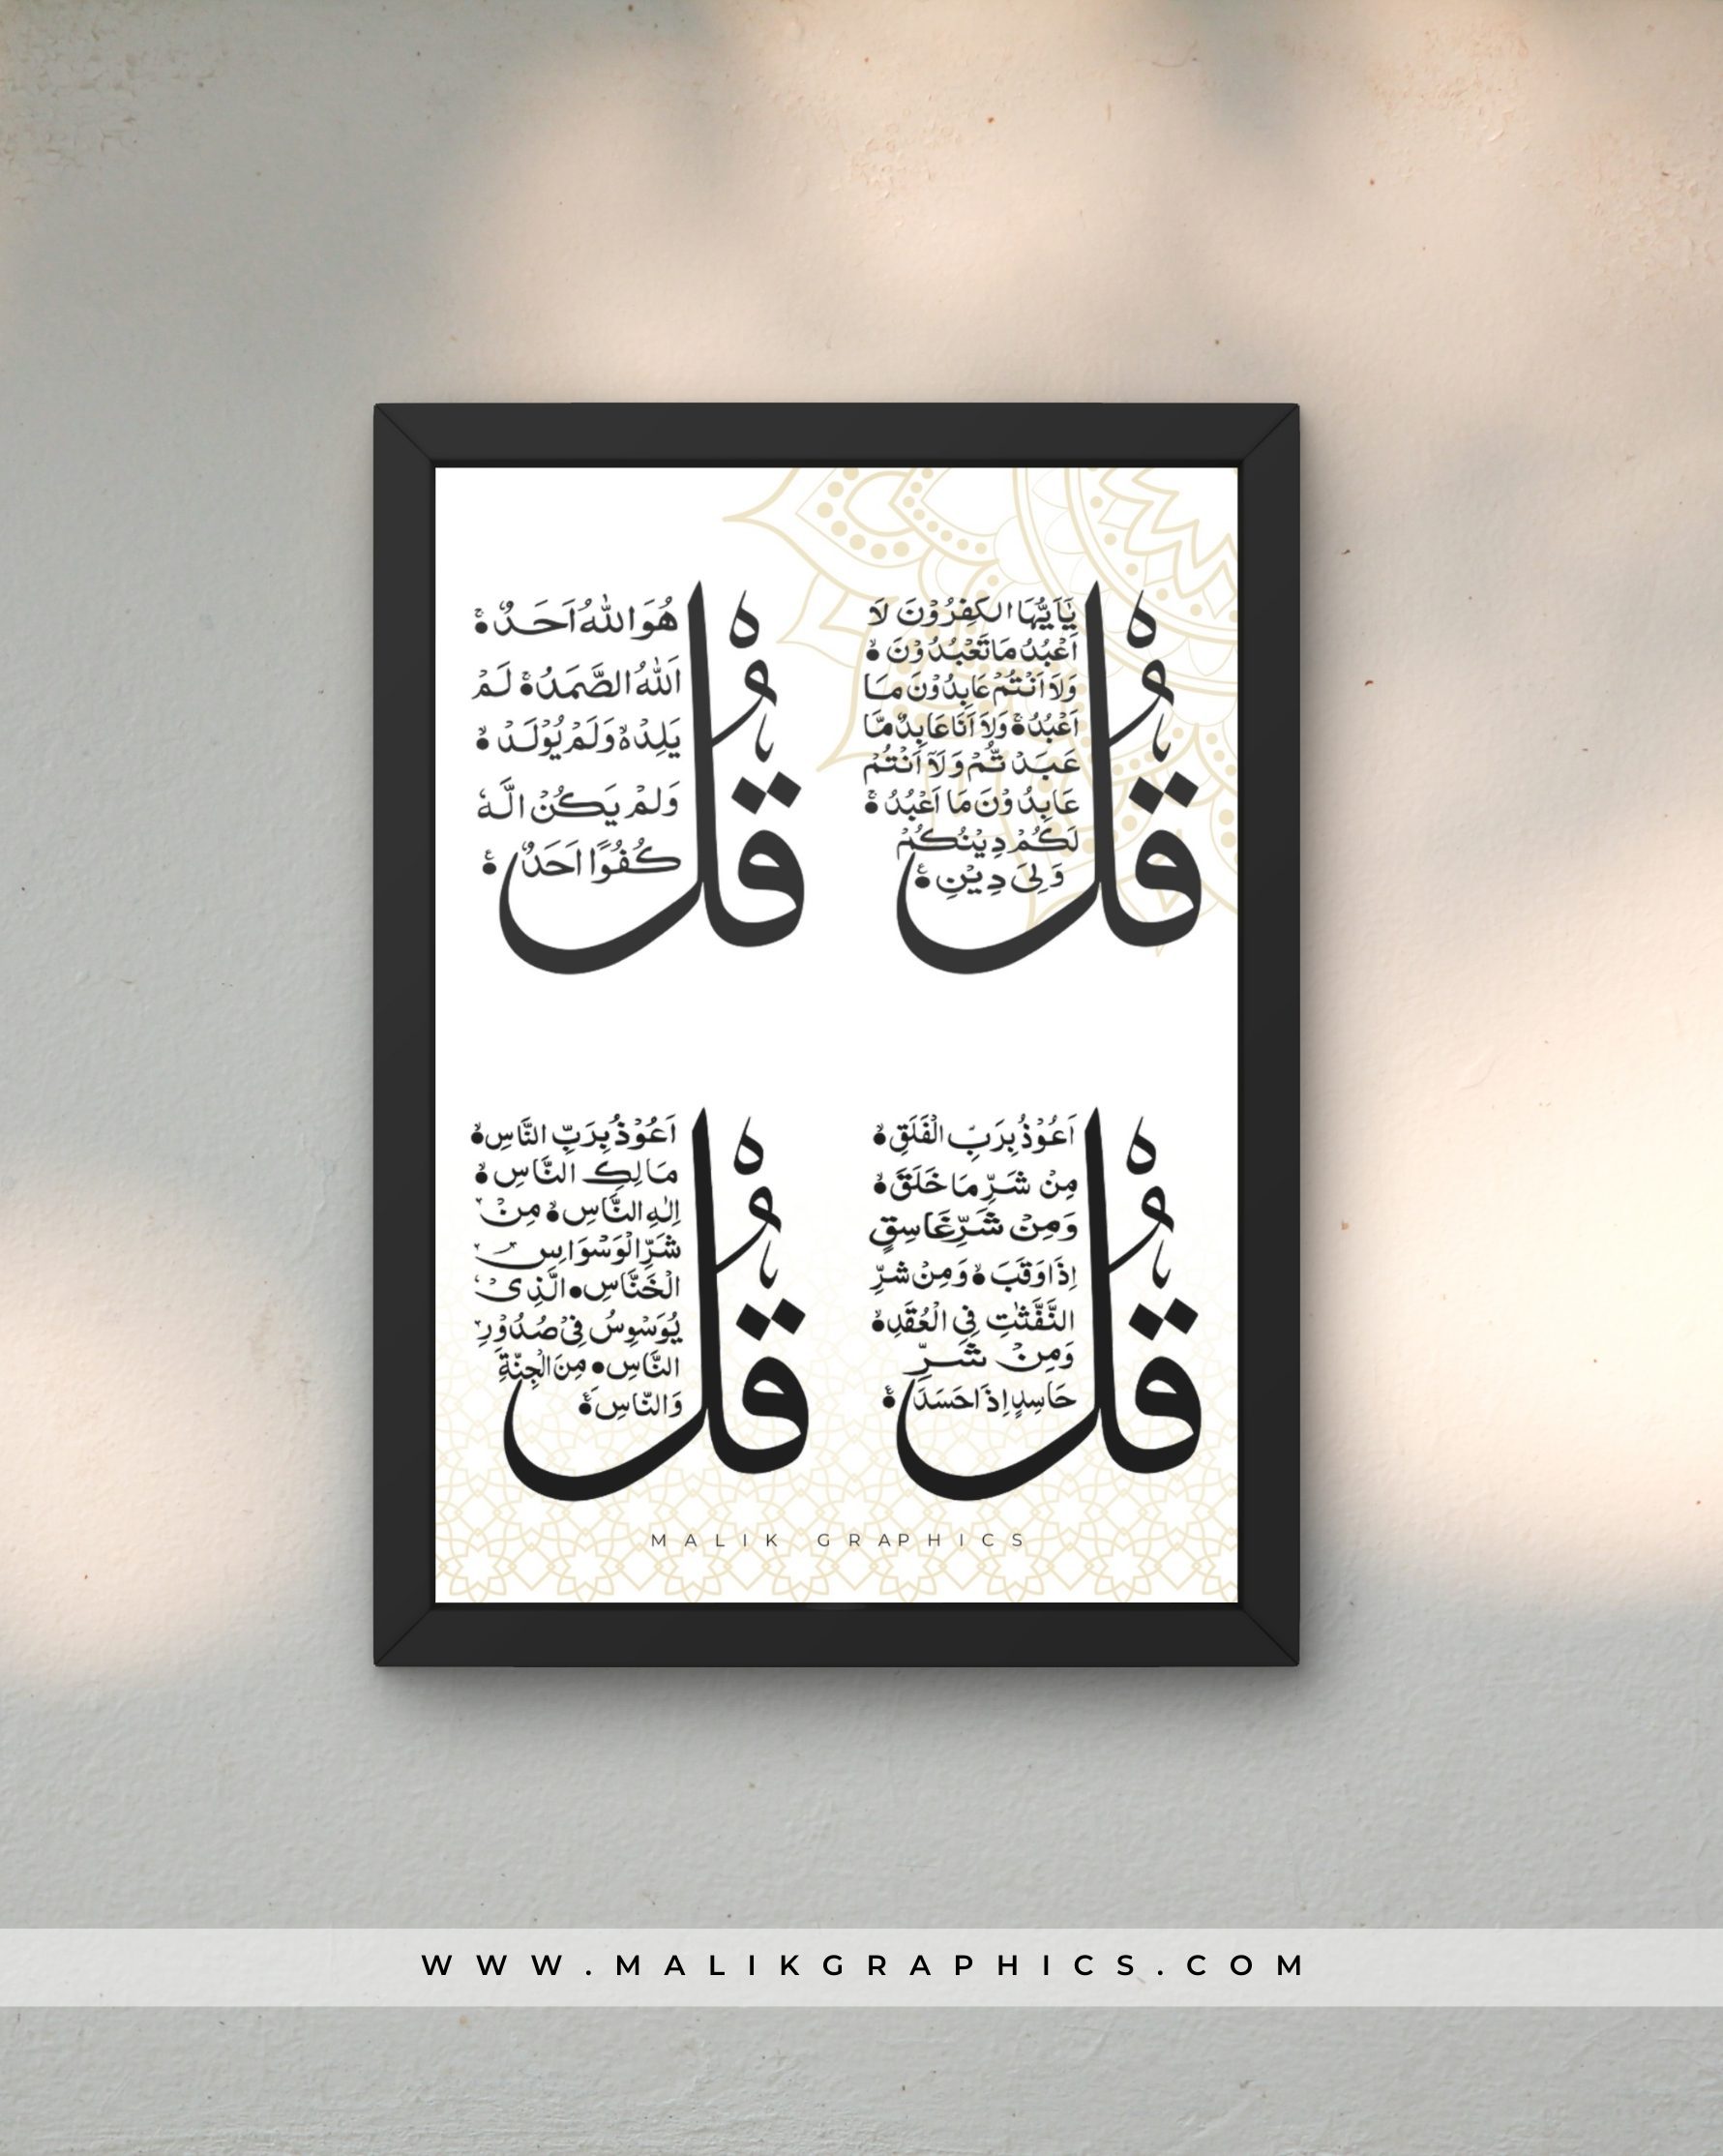 قُلْ
يٰٓاَيُّهَا الكٰفِرُوْنَ لَا
اَعْبُدُ مَا تَعْبُدُوْنَ ۀ
وَلَا اَنْتُمْ عَابِدُوْنَ مَا
اَعْبُدُ ۀ وَلَا اَنَا عَابِدٌ مَّا
عَبَدْ تُّمْ وَلَآ اَنْتُمْ
عَابِدُوْنَ مَا اَعْبُدُ ۀ
لَكُمْ دِيْنُكُمْ
وَلِىَ دِيْنِ ۀ
قُلْ
هُوَ اللّٰهُ اَحَدٌ ۀ
اَللّٰهُ الصَّمَدُ ۀ لَمْ
يَلِدْ ۀ وَلَمْ يُوْلَدْ ۀ
وَلمْ يَكُنْ الَّهٗ
كُفُوًا اَحَدٌ ۀ
قُلْ
اَعُوْذُ بِرَبِّ الْفَلَقِ ۀ
مِنْ شَرِّ مَا خَلَقَ ۀ
وَمِنْ شَرِّ غَاسِقٍ
اِذَا وَقَبَ ۀ وَمِنْ شَرِّ
النَّفّٰثٰتِ فِى الْعُقَدِ ۀ
وَمِنْ شَرِّ
حَاسِدٍ اِذَا حَسَدَ ۀ
قُلْ
اَعُوْذُ بِرَبِّ النَّاسِ ۀ
مَالِكِ النَّاسِ ۀ
اِلٰهِ النَّاسِ ۀ مِنْ
شَرِّ الْوَسْوَاسِ
الْخَنَّاسِ ۀ الَّذِىْ
يُوَسْوِسُ فِىْ صُدُوْرِ
النَّاسِ ۀ مِنَ الْجِنَّةِ
وَالنَّاسِ ۀ
MALIK GRAPHICS
WWW.MALIKGRAPHICS.COM